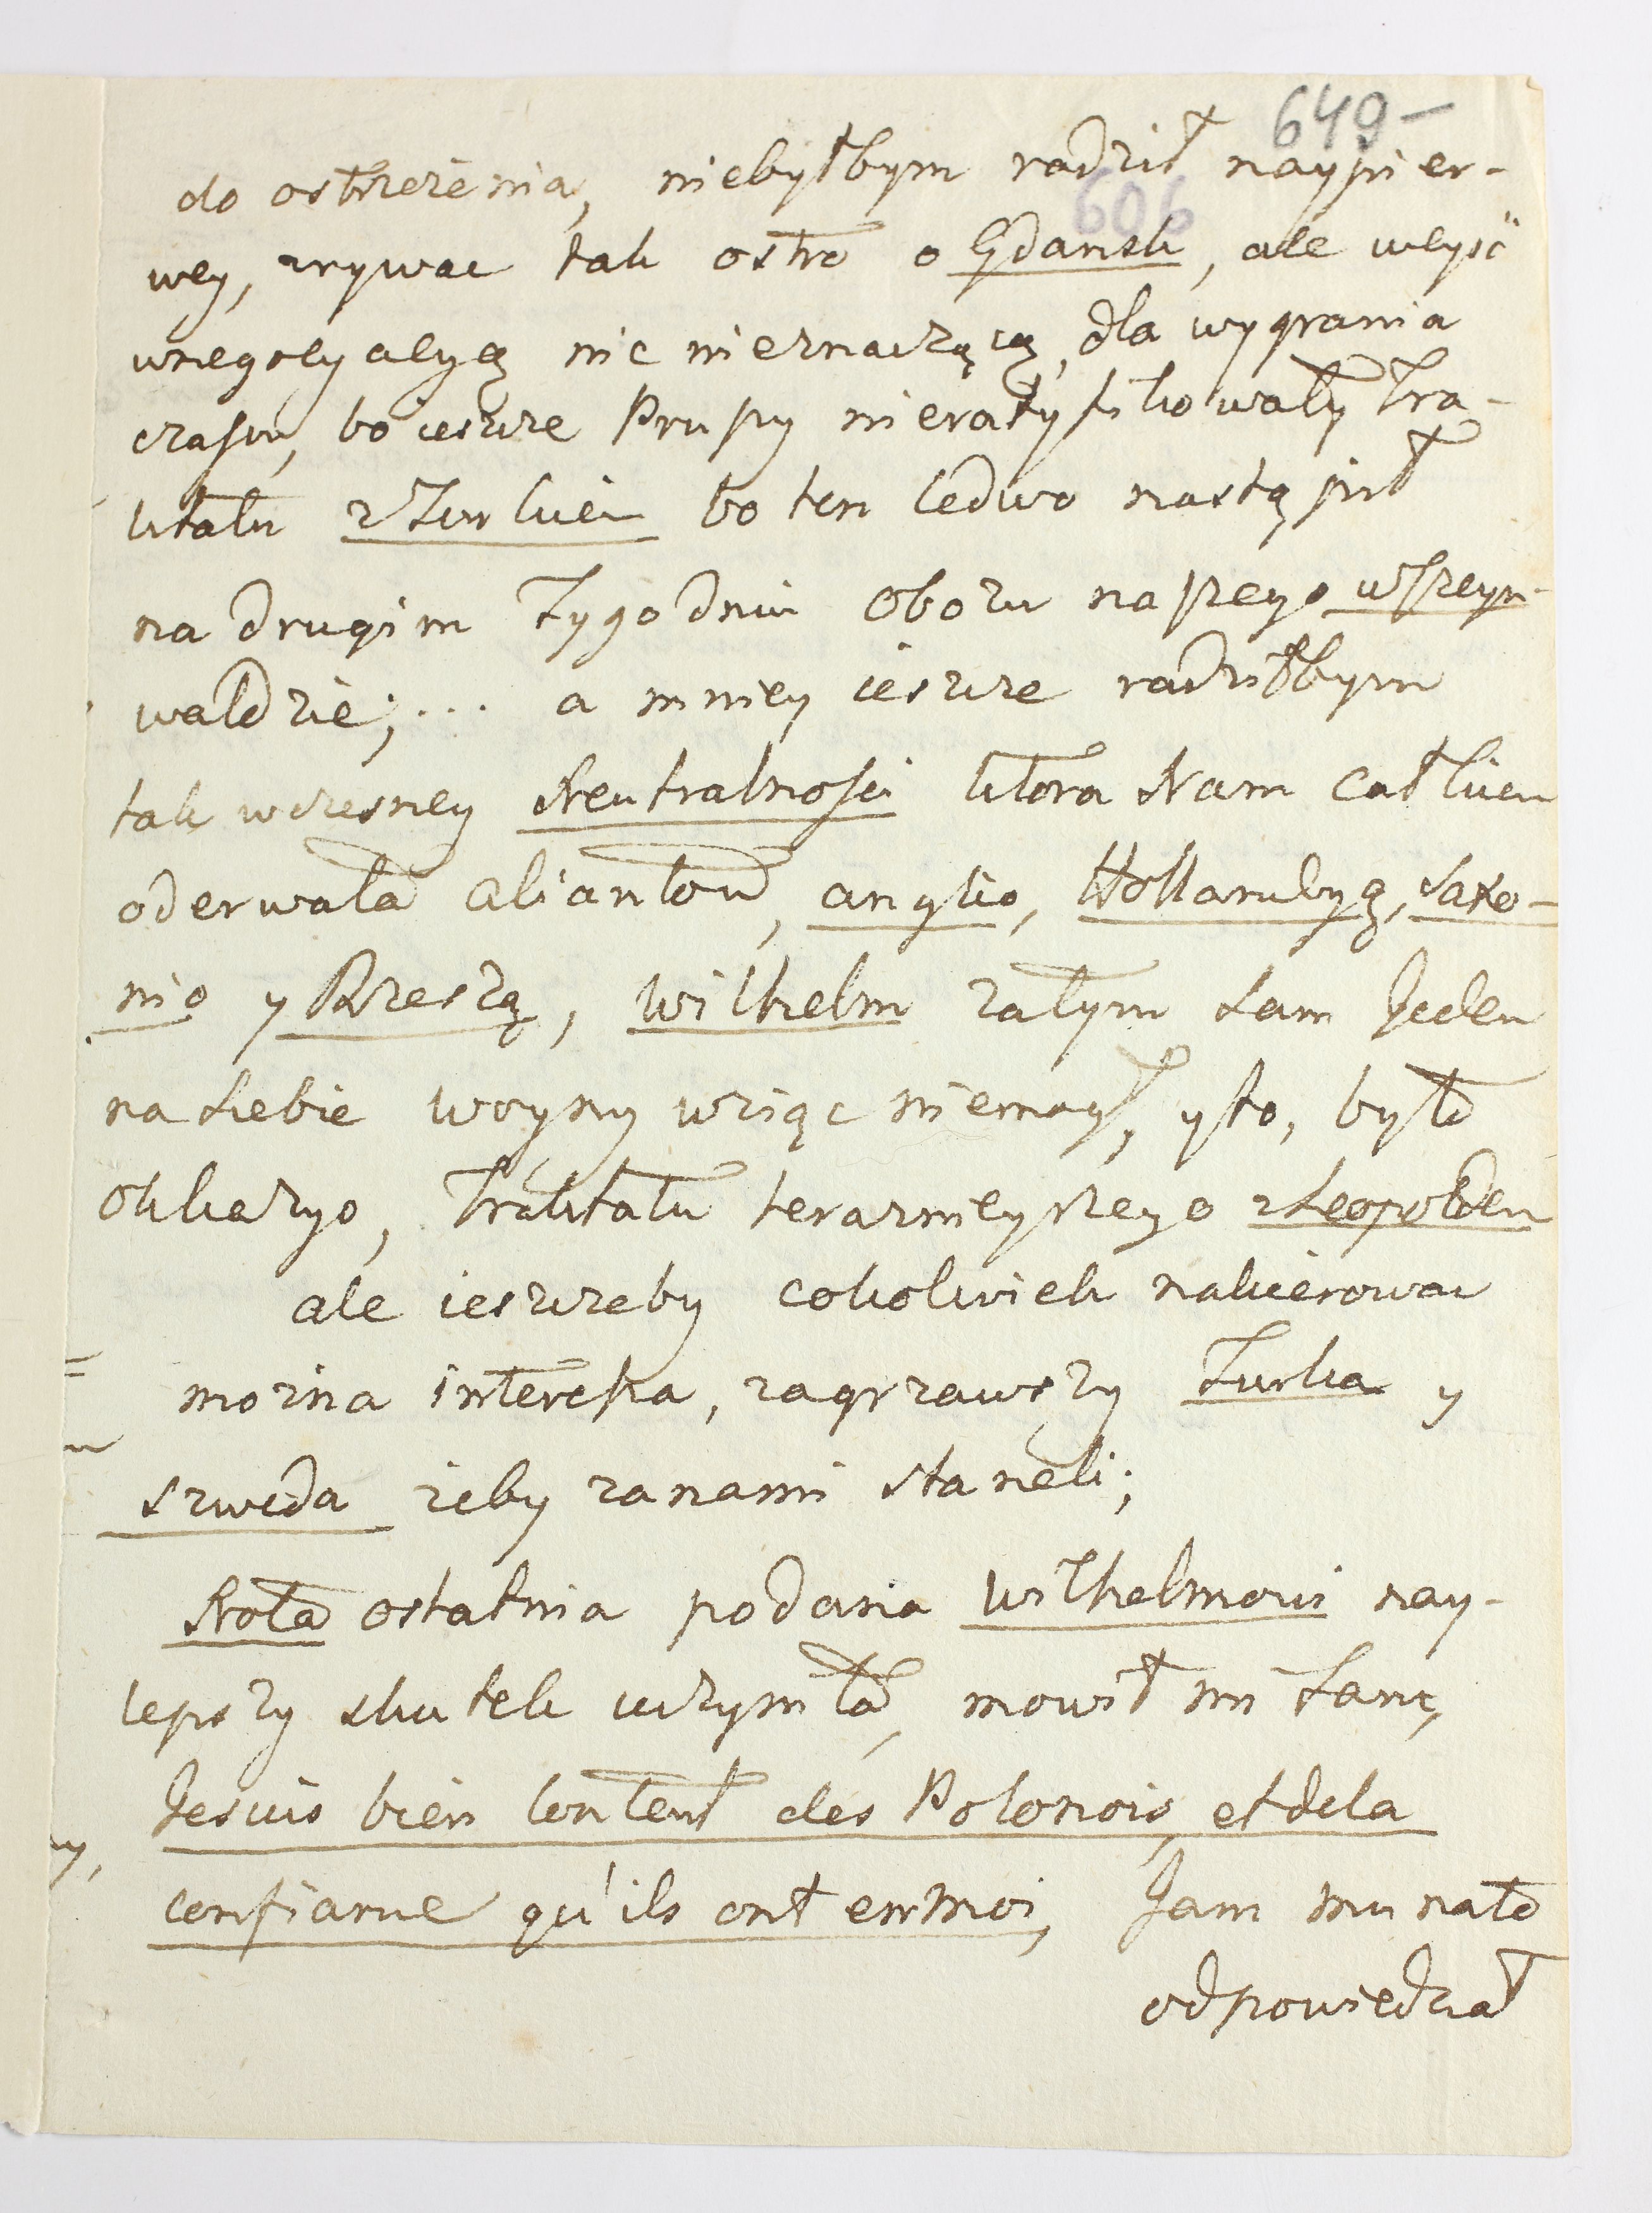 649-
606
do ostrzeżenia, niebyłbym radził naypier-
wey, zrywac tak ostro o Gdansk, ale weyść
wnegocyacyą nic nieznaczącą, dla wygrania
czasu, bo ieszcze Prussy nieratyfikowały tra-
ktatu zTurkiem bo ten ledwo nastąpił
na drugim tygodniu obozu naszego wSzeyn-
waldzie;... a mniey ieszcze radziłbym
tak wczesney Neutralności ktora Nam całkiem
oderwała aliantow, anglio, Hollandyą, Saxo-
nio y Rzeszą, wilhelm zatym sam Jeden
na siebie woyny wziąc niemógł, yto, było
okkazyo, Traktatu teraznieyszego zLeopoldem
ale ieszczeby cokolwiek nakierowac
można interessa, zagrzawszy Turka y
szweda żeby zanami staneli;
Nota ostatnia podana wilhelmowi nay-
lepszy skutek uczyniła, mowił mi sam,
Jesuis bien content des Polonois, et dela
confiance qu'ils ont enmoi, Jam mu nato
odpowiedział